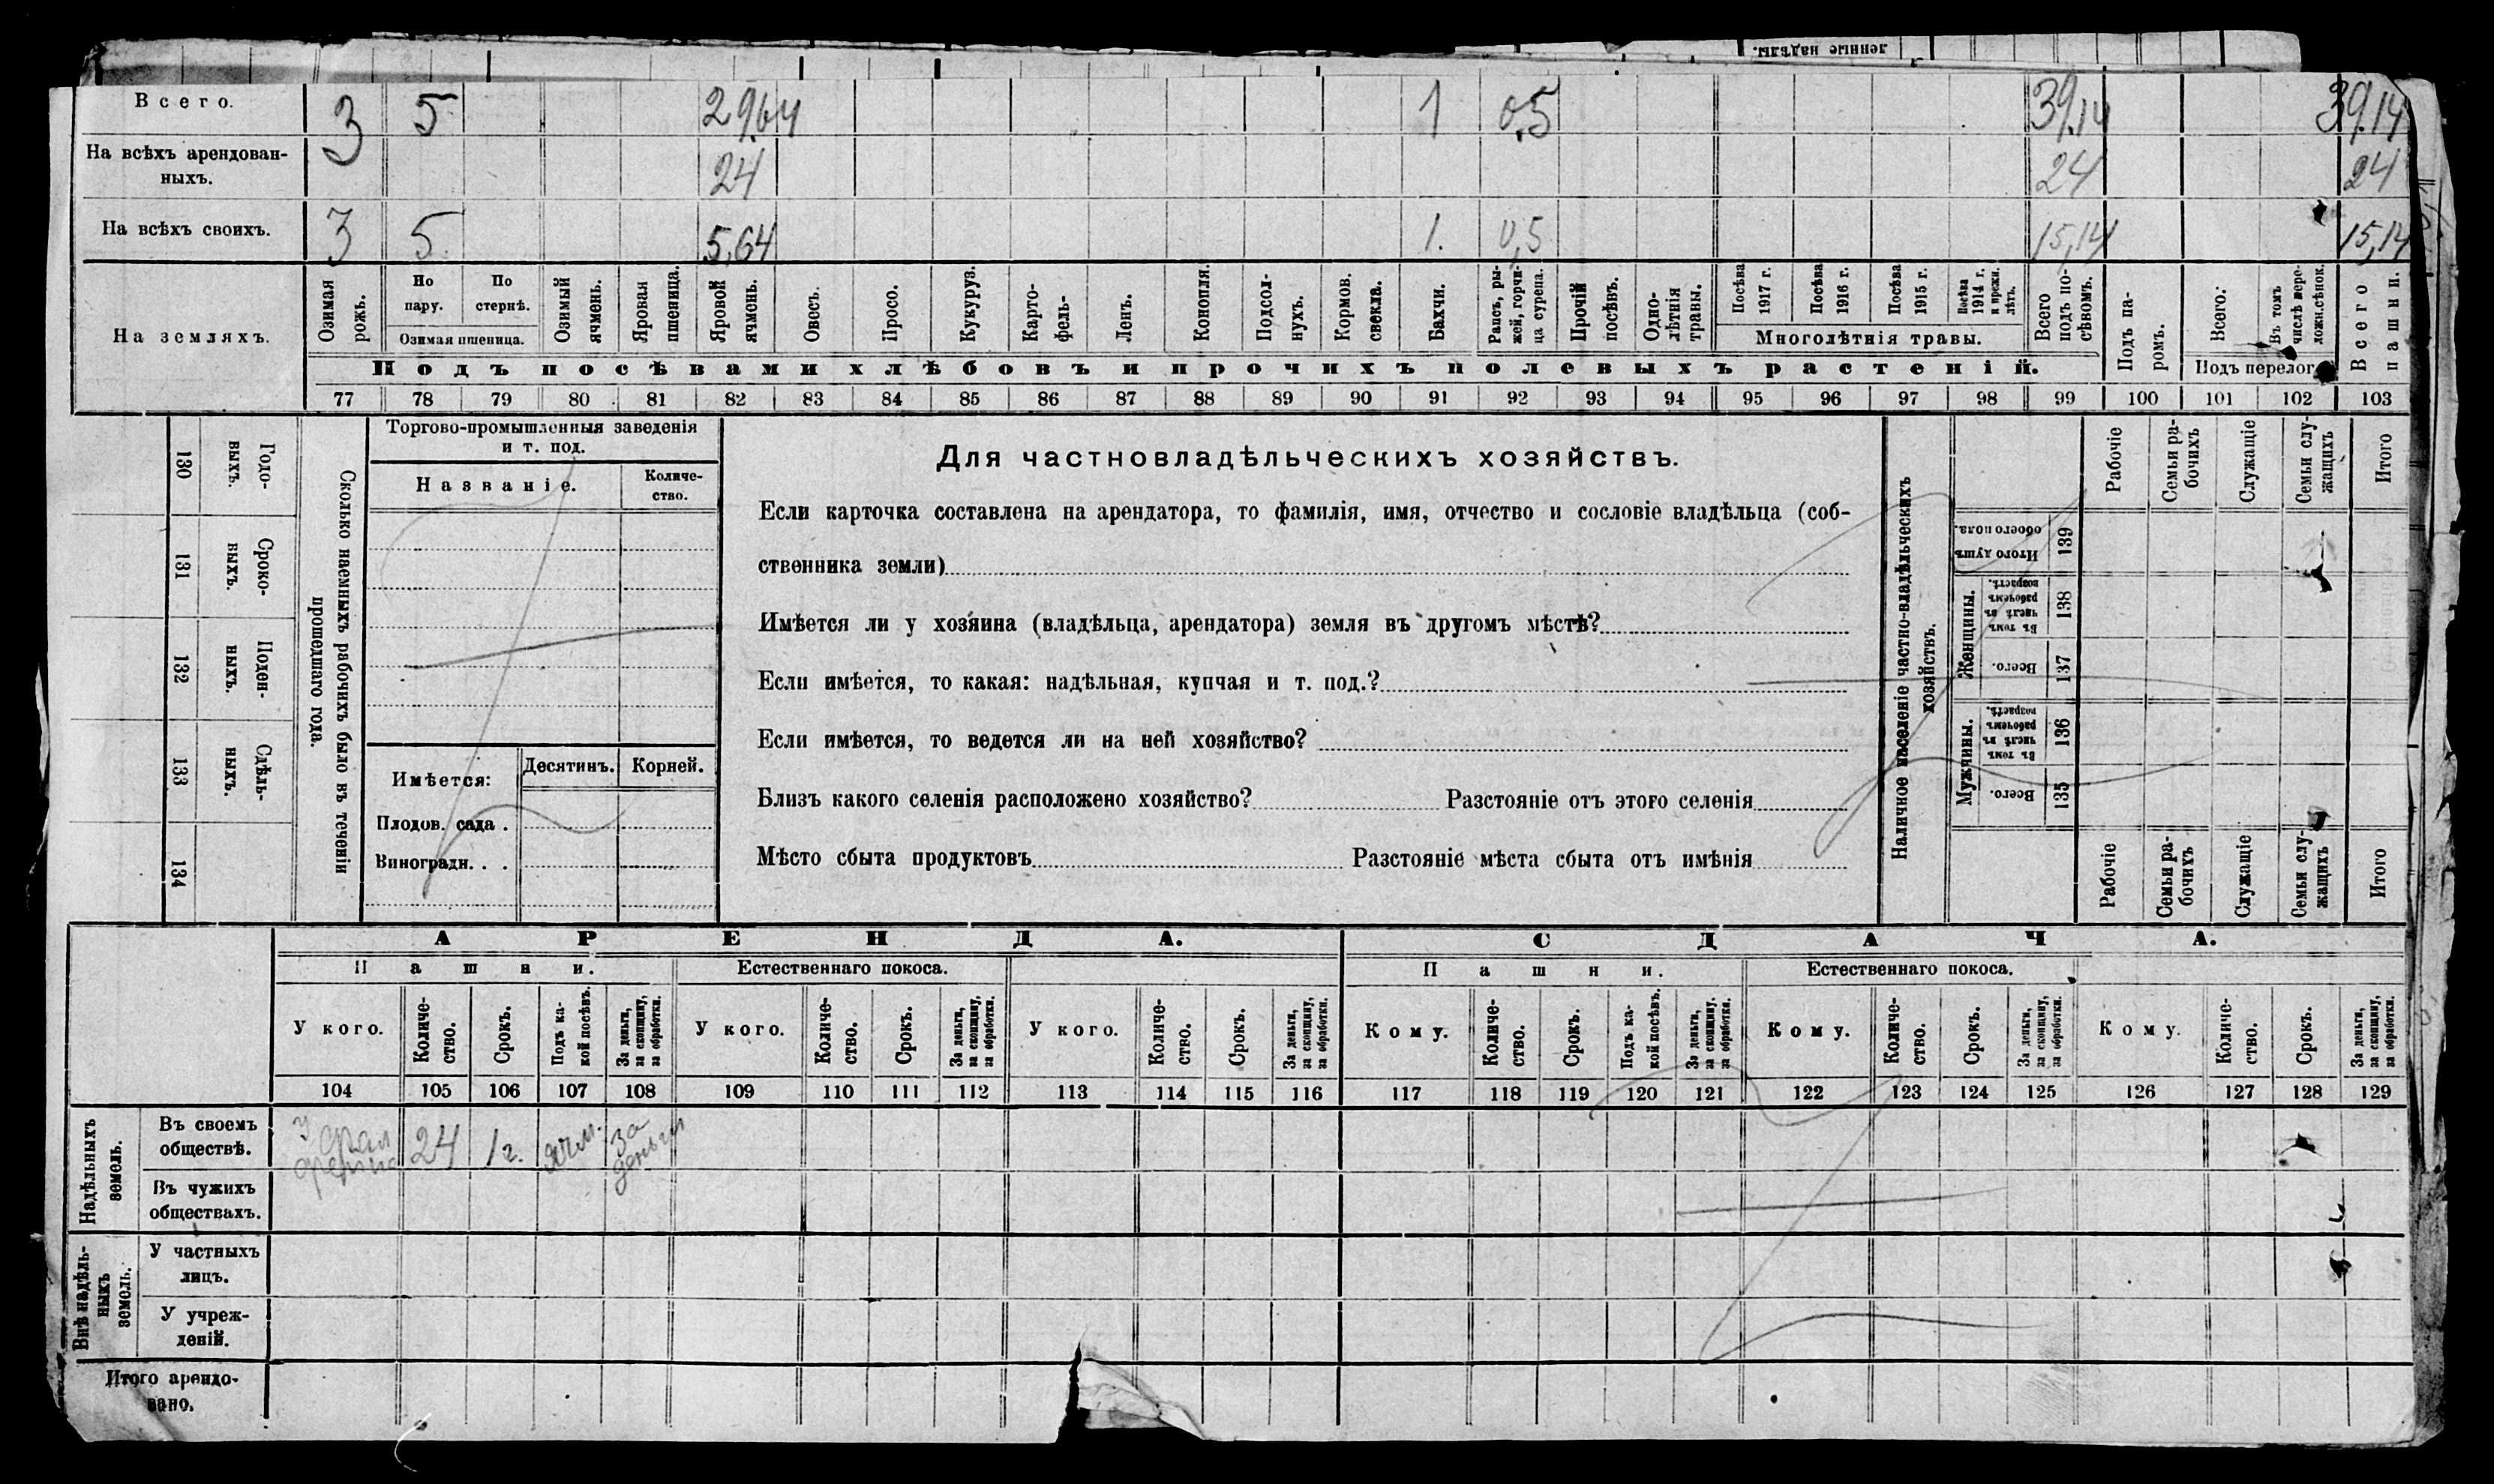 денные надѣлы.
Всего. 3 5 29,64 1 0,5 39,14 39,14
На всѣхъ арендован-
ныхъ. 24 24 24
На всѣхъ своихъ. 3 5 5,64 1. 0,5 15,14 15,14
На земляхъ.
Озимая
рожь.
По
пару.
По
стернѣ.
Озимая пшеница.
Озимый
ячмень.
Яровая
пшеница.
Яровой
ячмень.
Овесъ.
Просо.
Кукуруз.
Карто-
фель-
Ленъ.
Конопля.
Подсол-
нухъ.
Кормов.
свекла.
Бахчи.
Рапсъ, ры-
жей, горчи-
ца сурепа.
Прочій
посѣвъ.
Одно-
лѣтнія
травы.
Посѣва
1917 г.
Посѣва
1916 г.
Посѣва
1915 г.
Посѣва
1914 г.
и прежн.
лѣтъ.
Многолѣтнія травы.
Всего
подъ по-
сѣвомъ.
Подъ па-
ромъ.
Всего.
Въ томъ
числѣ пере-
ложн.сѣнок.
Подъ перелог
Всего
пашни.
Подъ посѣвами хлѣбовъ и прочихъ полевыхъ растеній.
77 78 79 80 81 82 83 84 85 86 87 88 89 90 91 92 93 94 95 96 97 98 99 100 101 102 103
Сколько наемныхъ рабочихъ было въ теченіи
прошедшаго года.
Годо-
выхъ.
130
Сроко-
выхъ.
131
Поден-
ныхъ.
132
Сдѣль-
ныхъ.
133
134
Торгово-промышленныя заведенія
и т. под.
Названіе.
Количе-
ство.
Имѣется:
Десятинъ. Корней.
Плодов. сада .
Виноградн. . .
Для частновладѣльческихъ хозяйствъ.
Если карточка составлена на арендатора, то фамилія, имя, отчество и сословіе владѣльца (соб-
ственника земли)
Имѣется ли у хозяина (владѣльца, арендатора) земля въ другомъ мѣстѣ?
Если имѣется, то какая: надѣльная, купчая и т. под.?
Если имѣется, то ведется ли на ней хозяйство?
Близъ какого селенія расположено хозяйство? Разстояніе отъ этого селенія
Мѣсто сбыта продуктовъ Разстояніе мѣста сбыта отъ имѣнія
Наличное населеніе частно-владѣльческихъ
хозяйствъ.
Рабочіе
Семьи ра-
бочихъ
Служащіе
Семьи слу-
жащихъ
Итого
Итого душъ
обоего пола.
139
Женщины.
Въ томъ
числѣ въ
рабочемъ
возрастѣ.
138
Всего.
137
Мужчины.
Въ томъ
числѣ въ
рабочемъ
возрастѣ.
136
Всего.
135
Рабочіе
Семьи ра-
бочихъ
Служащіе
Семьи слу-
жащихъ
Итого
АРЕНДА. СДАЧА.
Пашни. Естественнаго покоса. Пашни. Естественнаго покоса.
У кого.
Количе-
ство.
Срокъ.
Подъ ка-
кой посѣвъ.
За деньги,
за скопщину,
за обработки.
У кого.
Количе-
ство.
Срокъ.
За деньги,
за скопщину,
за обработки.
У кого.
Количе-
ство.
Срокъ.
За деньги,
за скопщину,
за обработки.
Кому.
Количе-
ство.
Срокъ.
Подъ ка-
кой посѣвъ.
За деньги,
за скопщину.
за обработки.
Кому.
Количе-
ство.
Срокъ.
За деньги,
за скопщину,
за обработки.
Кому.
Количе-
ство.
Срокъ.
За деньги,
за скопщину,
за обработки.
104 105 106 107 108 109 110 111 112 113 114 115 116 117 118 119 120 121 122 123 124 125 126 127 128 129
Надѣльныхъ
земель.
Въ своемъ
обществѣ. У 24 1 г. ячм. за
деньги
Въ чужихъ
обществахъ.
Внѣ надѣль-
ныхъ
земель.
У частныхъ
лицъ.
У учреж-
деній.
Итого арендо-
вано.